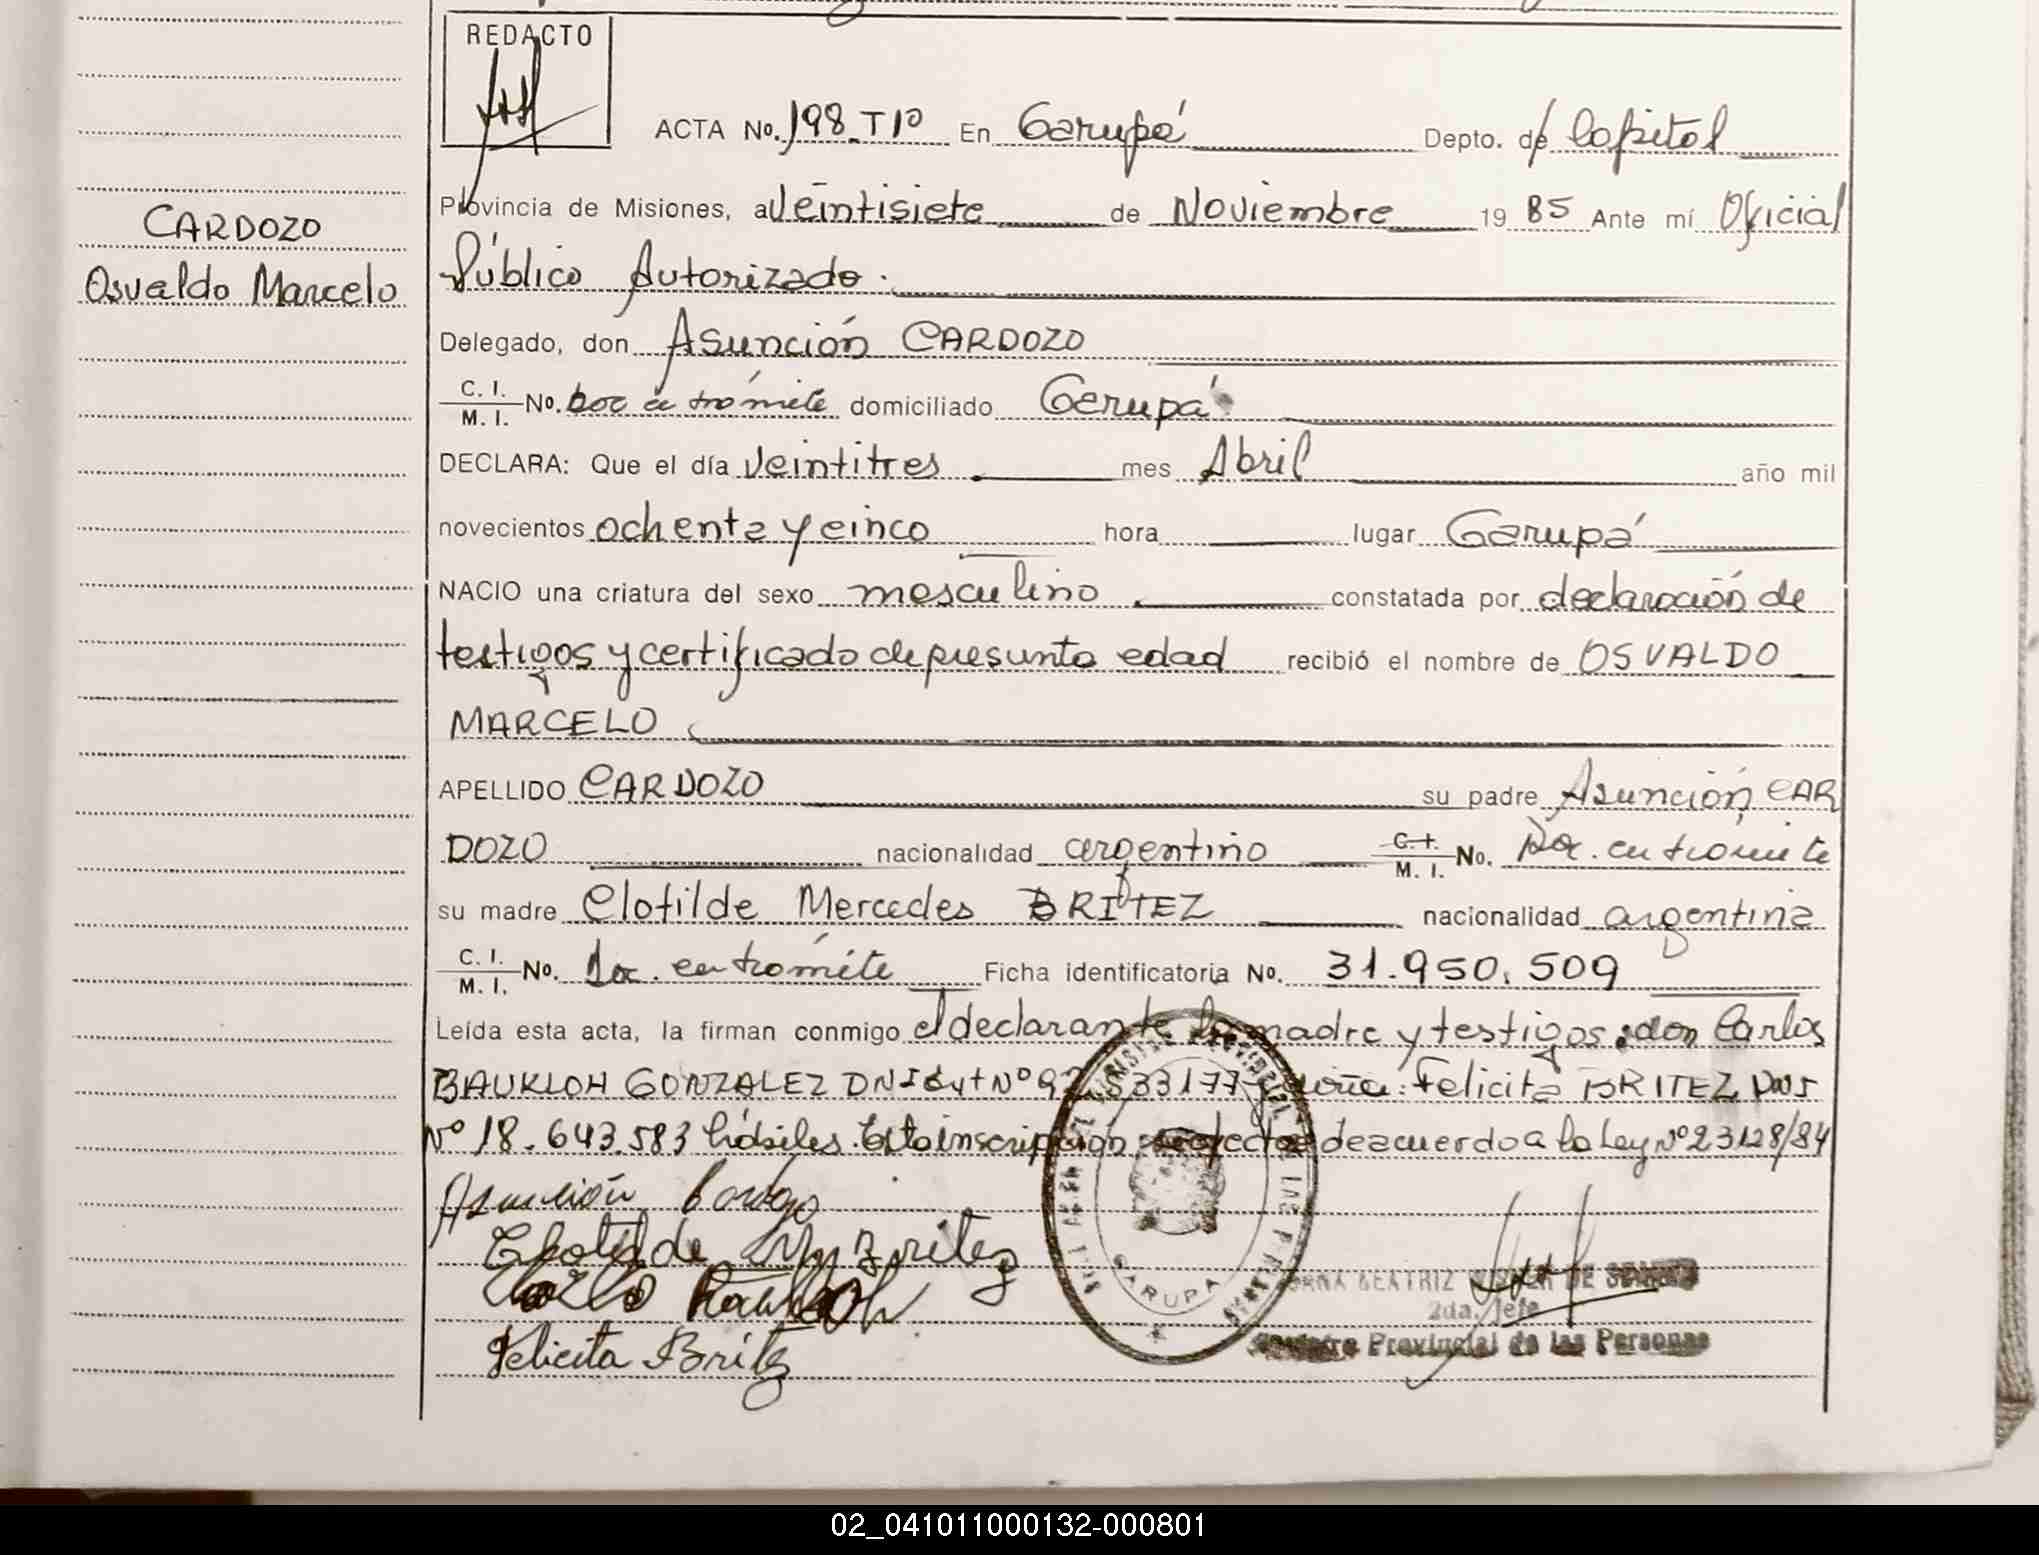 REDACTO
ACTA No. 198 T1º En Garupá Depto. de Capital
Provincia de Misiones, a Veintisiete de Noviembre 19 85 Ante mí Oficial
CARDOZO
Osvaldo Marcelo
Público Autorizado.
Delegado, don Asunción CARDOZO
C. I. M. I. No. Doc en trámite domiciliado Garupá
DECLARA: Que el día veintitres mes Abril año mil
novecientos ochenta y cinco hora lugar Garupá
NACIO una criatura del sexo masculino constatada por declaración de
testigos y certificado de presunta edad recibió el nombre de OSVALDO
MARCELO
APELLIDO CARDOZO su padre Asunción CAR
DOZO nacionalidad argentino C.I. M. I. No. Doc. en trámite
su madre Clotilde Mercedes BRITEZ nacionalidad argentina
C. I. M. I. No. Doc. en trámite Ficha identificatoria No. 31.950.509
Leída esta acta, la firman conmigo el declarante la madre y testigos: don Carlos
BAUKLOH GONZALEZ DNI Nº 92 533177 y doña: Felicita BRITEZ DNI
Nº 18.643.583 hábiles. Esta inscripción de acuerdo a la Ley Nº 23128/84
Asunción Cardozo
Clotilde Britez
Carlos Baukloh
Felicita Britez
GARUPA
BEATRIZ DE
2da. Jefe
Registro Provincial de las Personas
02_041011000132-000801